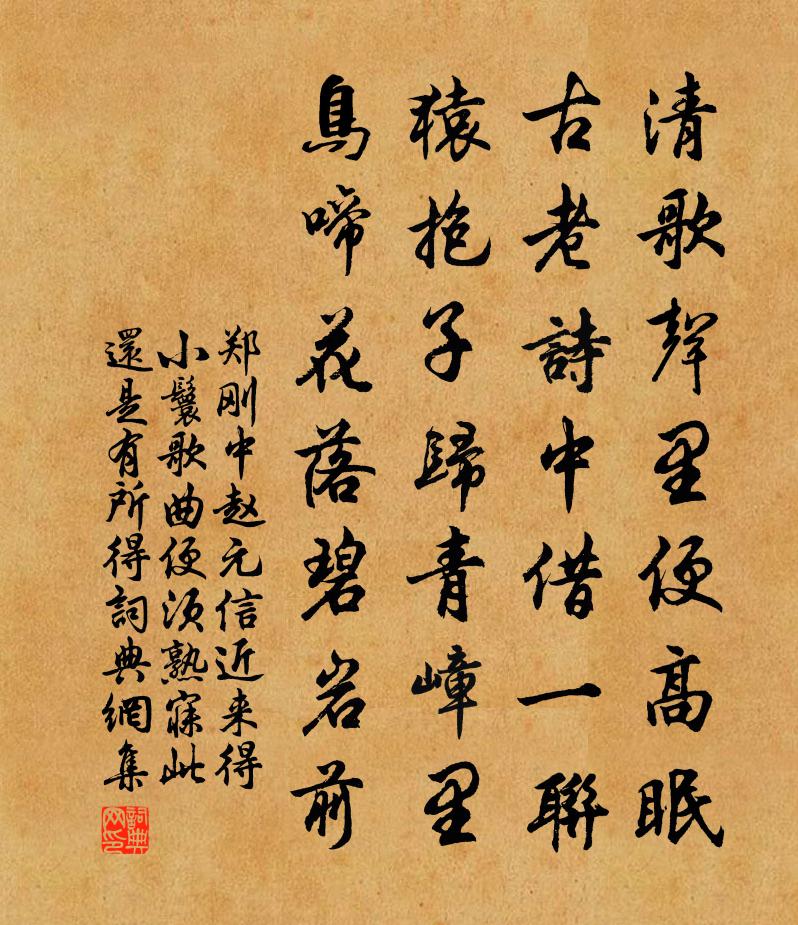 清歌聲里便高眠
古老詩中借一聯
猿抱子歸青嶂里
鳥啼花落碧岩前
郑刚中赵元信近来得
小鬟歌曲便须熟寐此
還是有所得詞典網集
詞典
网印